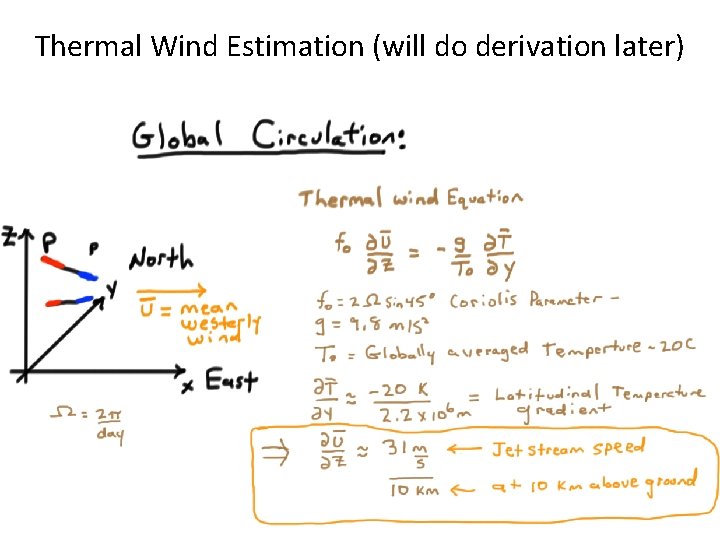 Thermal Wind Estimation (will do derivation later)
Global Circulation:
Thermal wind Equation
Z P P North
f₀ ∂Ū/∂Z = - g/T₀ ∂T̄/∂y
y
Ū = mean westerly wind
f₀ = 2 Ω sin 45° Coriolis Parameter -
g = 9.8 m/s²
T₀ = Globally averaged Temperture ~ 20C
x East
∂T̄/∂y ≈ -20 K / 2.2 x 10⁶ m = Latitudinal Temperature gradient
Ω = 2π/day
⇒ ∂Ū/∂Z ≈ 31 m/s / 10 Km
← Jet stream speed
← at 10 Km above ground